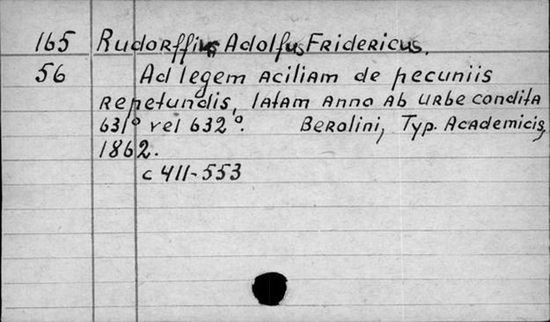 165 Rudorffius Adolfus Fridericus.
56 Ad legem Aciliam de pecuniis
repetundis, latam anno ab urbe condita
631° vel 632°. Berolini, Typ. Academicis,
1862.
c 411-553